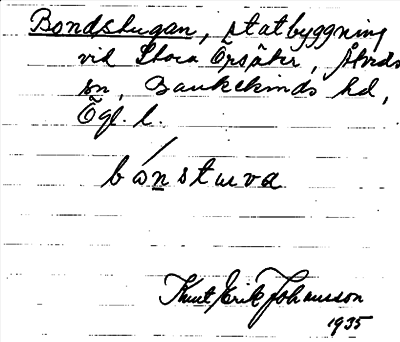 Bondstugan, statbyggning
vid Stora Örsäter, Åtvids
sn, Bankekinds hd,
Ögl. l.
bònstuva
Knut Erik Johansson
1935